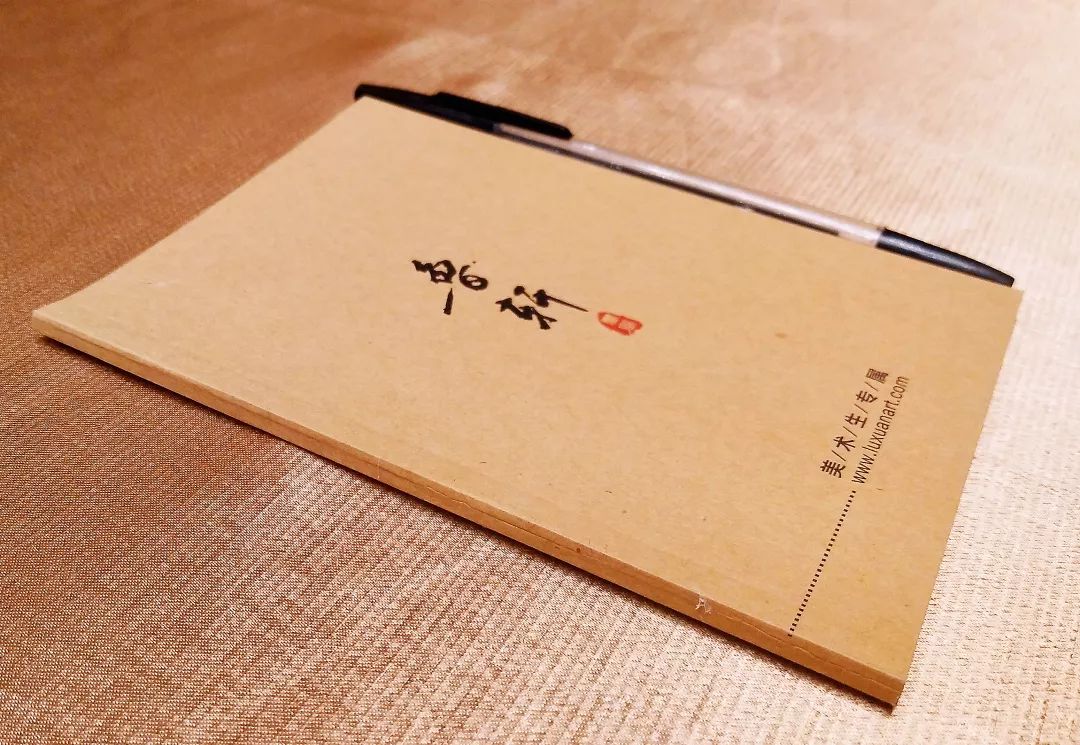 鲁轩
美/术/生/专/属
www.luxuanart.com